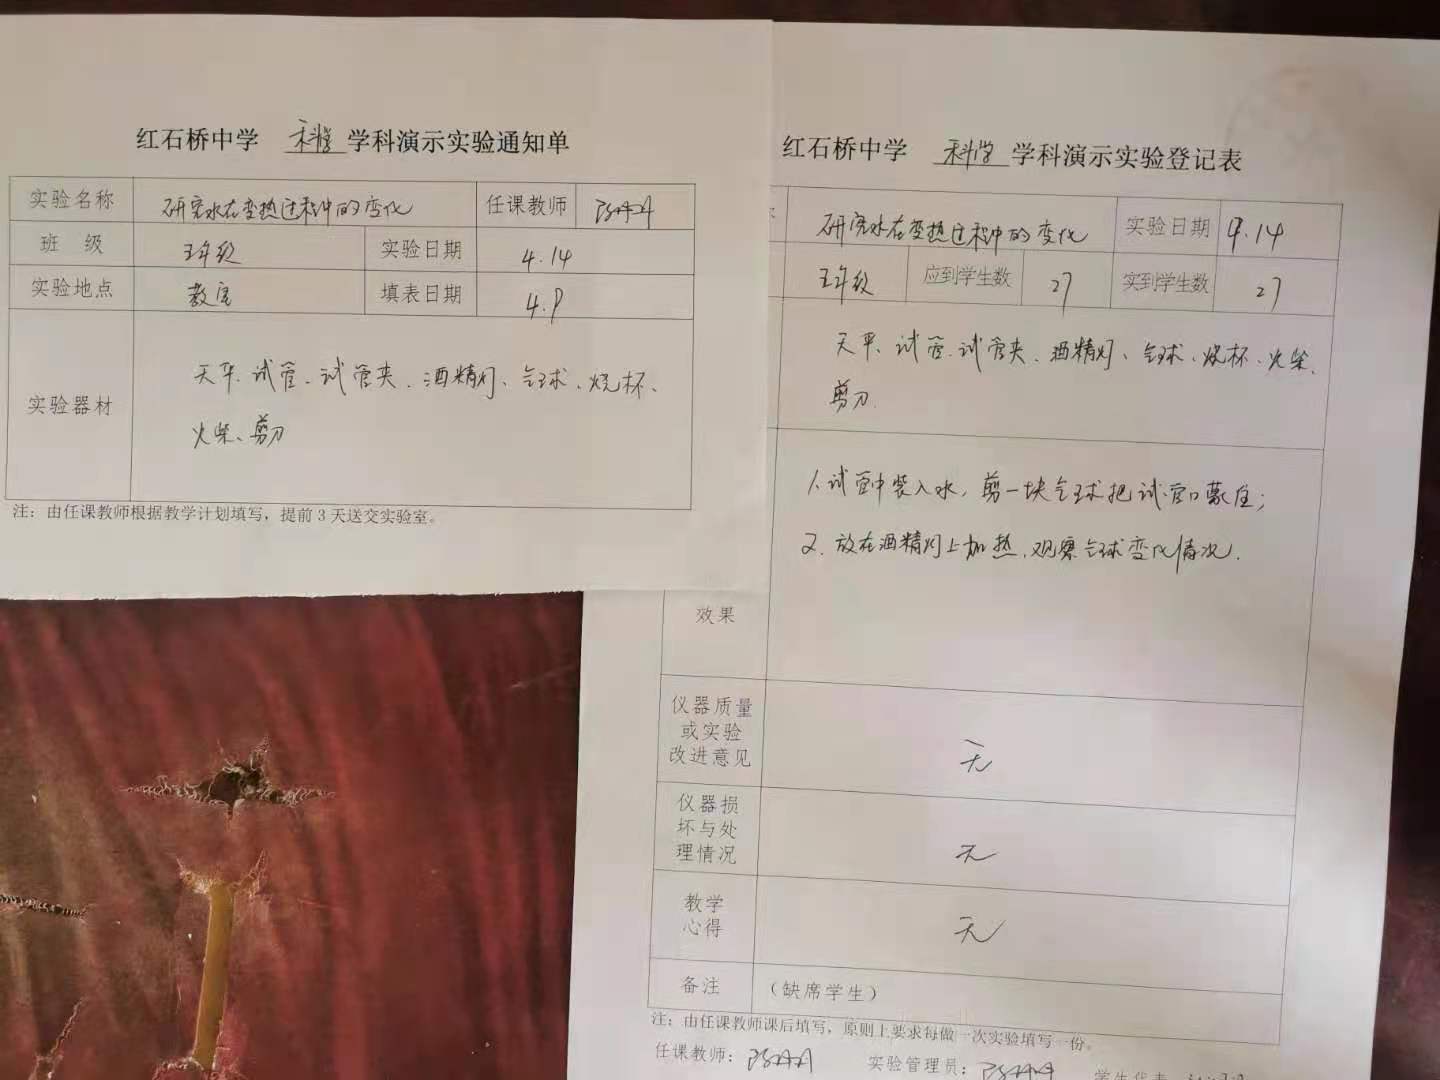 红石桥中学 科学 学科演示实验通知单
实验名称 研究水在变热过程中的变化 任课教师
班 级 五年级 实验日期 4.14
实验地点 教室 填表日期 4.9
实验器材 天平、试管、试管夹、酒精灯、气球、烧杯、
火柴、剪刀
注：由任课教师根据教学计划填写，提前3天送交实验室。
红石桥中学 科学 学科演示实验登记表
研究水在变热过程中的变化 实验日期 4.14
五年级 应到学生数 27 实到学生数 27
天平、试管、试管夹、酒精灯、气球、烧杯、火柴、
剪刀.
1.试管中装入水，剪一块气球把试管口蒙住；
2.放在酒精灯上加热，观察气球变化情况.
效果
仪器质量
或实验
改进意见 无
仪器损
坏与处
理情况 无
教学
心得 无
备注 （缺席学生）
注：由任课教师课后填写，原则上要求每做一次实验填写一份。
任课教师： 实验管理员： 学生代表